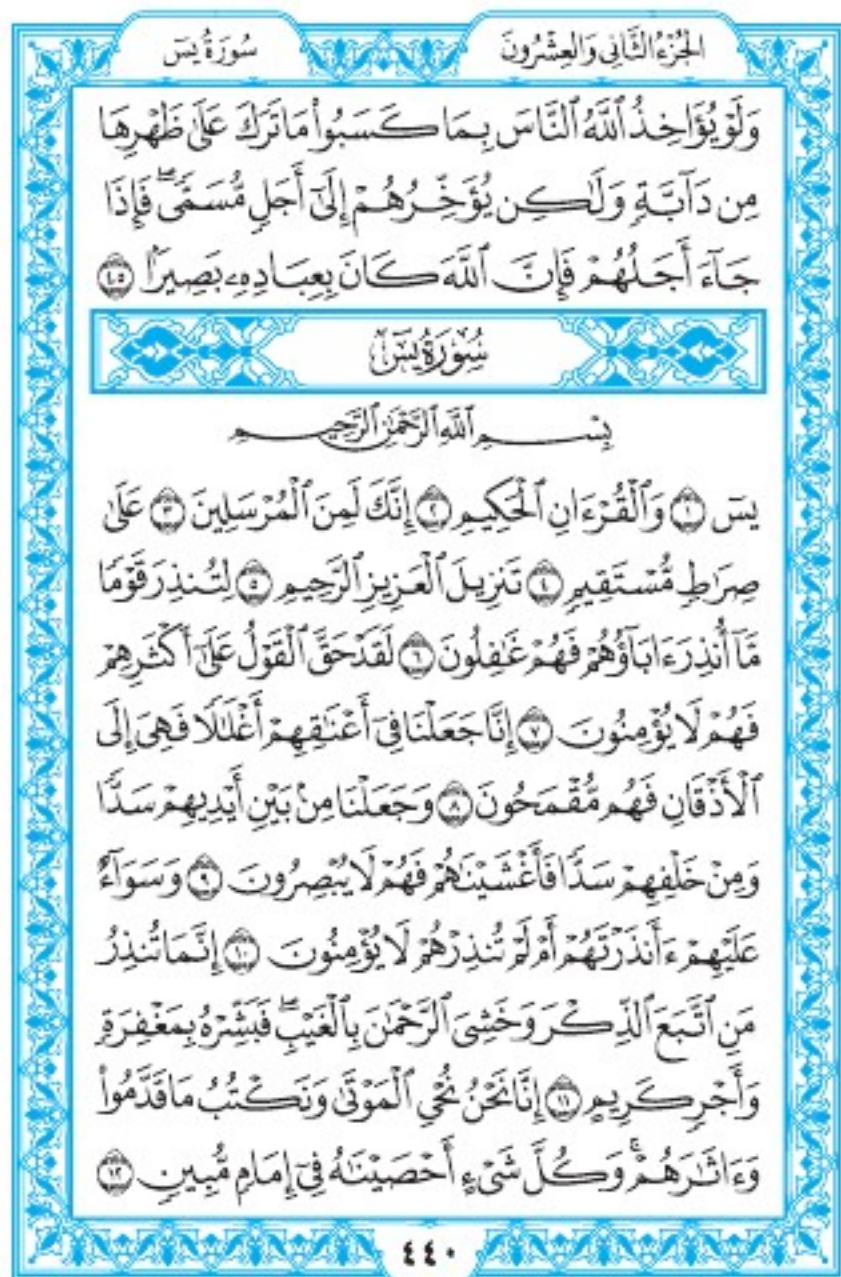 الجُزْءُ الثَّانِي وَالعِشْرُونَ سُورَةُ يسٓ
وَلَوْ يُؤَاخِذُ ٱللَّهُ ٱلنَّاسَ بِمَا كَسَبُوا۟ مَا تَرَكَ عَلَىٰ ظَهْرِهَا
مِن دَآبَّةٍ وَلَٰكِن يُؤَخِّرُهُمْ إِلَىٰٓ أَجَلٍ مُّسَمًّى ۖ فَإِذَا
جَآءَ أَجَلُهُمْ فَإِنَّ ٱللَّهَ كَانَ بِعِبَادِهِۦ بَصِيرًۢا ٤٥
سُورَةُ يسٓ
بِسْمِ ٱللَّهِ ٱلرَّحْمَٰنِ ٱلرَّحِيمِ
يسٓ ١ وَٱلْقُرْءَانِ ٱلْحَكِيمِ ٢ إِنَّكَ لَمِنَ ٱلْمُرْسَلِينَ ٣ عَلَىٰ
صِرَٰطٍ مُّسْتَقِيمٍ ٤ تَنزِيلَ ٱلْعَزِيزِ ٱلرَّحِيمِ ٥ لِتُنذِرَ قَوْمًا
مَّآ أُنذِرَ ءَابَآؤُهُمْ فَهُمْ غَٰفِلُونَ ٦ لَقَدْ حَقَّ ٱلْقَوْلُ عَلَىٰٓ أَكْثَرِهِمْ
فَهُمْ لَا يُؤْمِنُونَ ٧ إِنَّا جَعَلْنَا فِىٓ أَعْنَٰقِهِمْ أَغْلَٰلًا فَهِىَ إِلَى
ٱلْأَذْقَانِ فَهُم مُّقْمَحُونَ ٨ وَجَعَلْنَا مِنۢ بَيْنِ أَيْدِيهِمْ سَدًّا
وَمِنْ خَلْفِهِمْ سَدًّا فَأَغْشَيْنَٰهُمْ فَهُمْ لَا يُبْصِرُونَ ٩ وَسَوَآءٌ
عَلَيْهِمْ ءَأَنذَرْتَهُمْ أَمْ لَمْ تُنذِرْهُمْ لَا يُؤْمِنُونَ ١٠ إِنَّمَا تُنذِرُ
مَنِ ٱتَّبَعَ ٱلذِّكْرَ وَخَشِىَ ٱلرَّحْمَٰنَ بِٱلْغَيْبِ ۖ فَبَشِّرْهُ بِمَغْفِرَةٍ
وَأَجْرٍ كَرِيمٍ ١١ إِنَّا نَحْنُ نُحْىِ ٱلْمَوْتَىٰ وَنَكْتُبُ مَا قَدَّمُوا۟
وَءَاثَٰرَهُمْ ۚ وَكُلَّ شَىْءٍ أَحْصَيْنَٰهُ فِىٓ إِمَامٍ مُّبِينٍ ١٢
٤٤٠